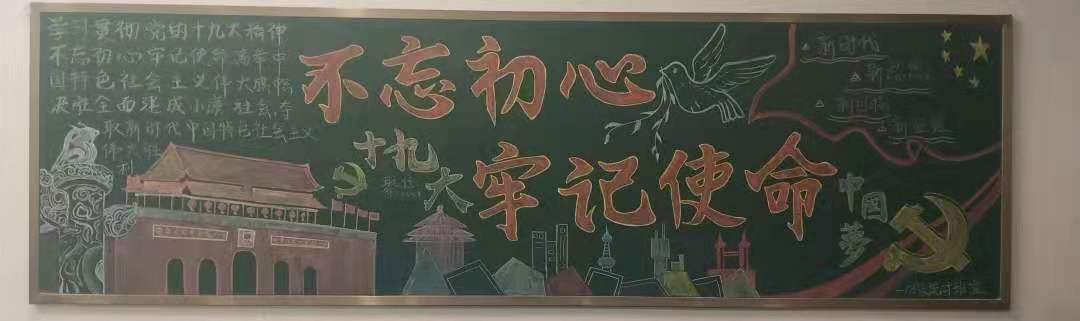 学习贯彻党的十九大精神
不忘初心牢记使命高举中
国特色社会主义伟大旗帜
决胜全面建成小康社会夺
取新时代中国特色社会主义
伟大胜
利
不忘初心
十九大
牢记使命
新时代
新思想
新目标
新征程
中国梦